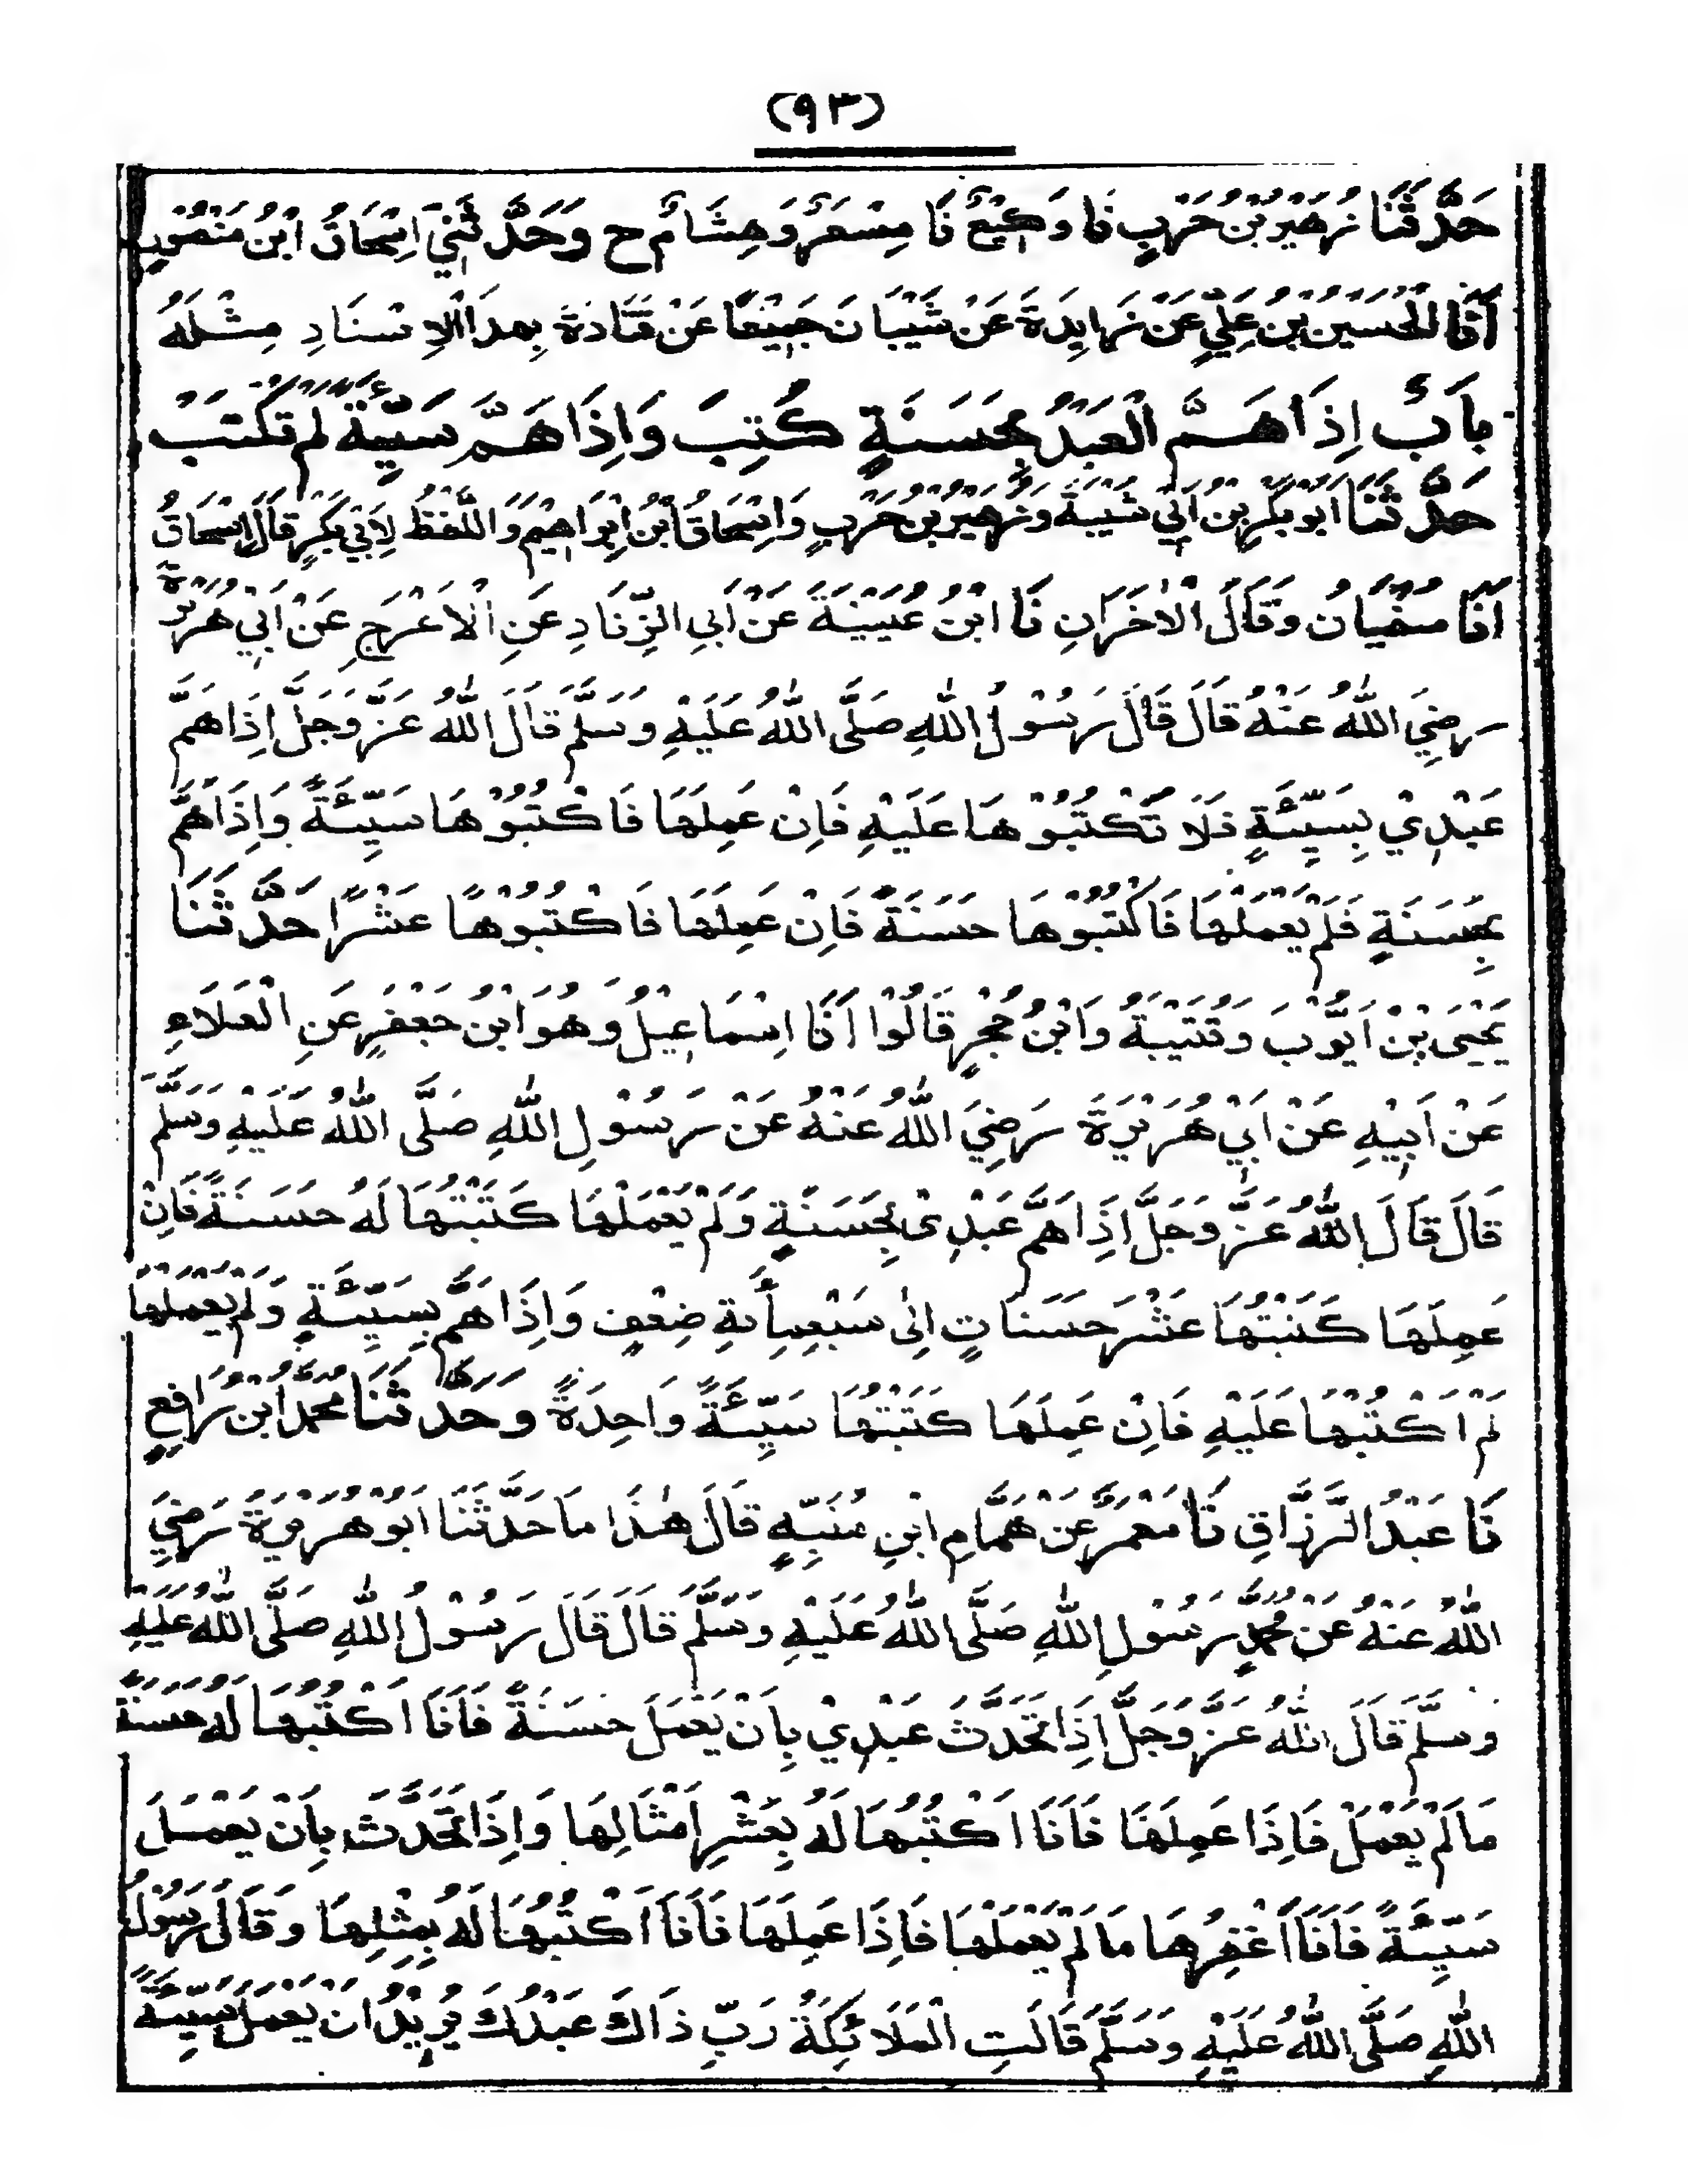 (٩٣)
حَدَّثَنَا زُهَيْرُ بْنُ حَرْبٍ نَا وَكِيْعٌ نَا مِسْعَرٌ وَهِشَامٌ ح وَحَدَّثَنِيْ اِسْحَاقُ ابْنُ مَنْصُوْرٍ
اَنَا الْحُسَيْنُ بْنُ عَلِيٍّ عَنْ زَايِدَةَ عَنْ شَيْبَانَ جَمِيْعًا عَنْ قَتَادَةَ بِهٰذَا الْاِسْنَادِ مِثْلَهُ
بَابٌ اِذَا هَمَّ الْعَبْدُ بِحَسَنَةٍ كُتِبَ وَاِذَا هَمَّ سَيِّئَةً لَمْ تُكْتَبْ
حَدَّثَنَا اَبُوْبَكْرِ بْنُ اَبِيْ شَيْبَةَ وَزُهَيْرُ بْنُ حَرْبٍ وَاِسْحَاقُ ابْنُ اِبْرَاهِيْمَ وَاللَّفْظُ لِاَبِيْ بَكْرٍ قَالَ اِسْحَاقُ
اَنَا سُفْيَانُ وَقَالَ الْاٰخَرَانِ نَا ابْنُ عُيَيْنَةَ عَنْ اَبِي الزِّنَادِ عَنِ الْاَعْرَجِ عَنْ اَبِيْ هُرَيْرَةَ
رَضِيَ اللّٰهُ عَنْهُ قَالَ قَالَ رَسُوْلُ اللّٰهِ صَلَّى اللّٰهُ عَلَيْهِ وَسَلَّمَ قَالَ اللّٰهُ عَزَّ وَجَلَّ اِذَا هَمَّ
عَبْدِيْ بِسَيِّئَةٍ فَلَا تَكْتُبُوْهَا عَلَيْهِ فَاِنْ عَمِلَهَا فَاكْتُبُوْهَا سَيِّئَةً وَاِذَا هَمَّ
بِحَسَنَةٍ فَلَمْ يَعْمَلْهَا فَاكْتُبُوْهَا حَسَنَةً فَاِنْ عَمِلَهَا فَاكْتُبُوْهَا عَشْرًا حَدَّثَنَا
يَحْيَى بْنُ اَيُّوْبَ وَقُتَيْبَةُ وَابْنُ حُجْرٍ قَالُوْا اَنَا اِسْمَاعِيْلُ وَهُوَ ابْنُ جَعْفَرٍ عَنِ الْعَلَاءِ
عَنْ اَبِيْهِ عَنْ اَبِيْ هُرَيْرَةَ رَضِيَ اللّٰهُ عَنْهُ عَنْ رَسُوْلِ اللّٰهِ صَلَّى اللّٰهُ عَلَيْهِ وَسَلَّمَ
قَالَ قَالَ اللّٰهُ عَزَّ وَجَلَّ اِذَا هَمَّ عَبْدِىْ بِحَسَنَةٍ وَلَمْ يَعْمَلْهَا كَتَبْتُهَا لَهُ حَسَنَةً فَاِنْ
عَمِلَهَا كَتَبْتُهَا عَشْرَ حَسَنَاتٍ اِلٰى سَبْعِمِأَئةِ ضِعْفٍ وَاِذَا هَمَّ بِسَيِّئَةٍ وَلَمْ يَعْمَلْهَا
لَمْ اَكْتُبْهَا عَلَيْهِ فَاِنْ عَمِلَهَا كَتَبْتُهَا سَيِّئَةً وَاحِدَةً وَحَدَّثَنَا مُحَمَّدُ ابْنُ رَافِعٍ
نَا عَبْدُ الرَّزَّاقِ نَا مَعْمَرٌ عَنْ هَمَّامِ ابْنِ مُنَبِّهٍ قَالَ هٰذَا مَا حَدَّثَنَا اَبُوْ هُرَيْرَةَ رَضِيَ
اللّٰهُ عَنْهُ عَنْ مُحَمَّدٍ رَسُوْلِ اللّٰهِ صَلَّى اللّٰهُ عَلَيْهِ وَسَلَّمَ قَالَ قَالَ رَسُوْلُ اللّٰهِ صَلَّى اللّٰهُ عَلَيْهِ
وَسَلَّمَ قَالَ اللّٰهُ عَزَّ وَجَلَّ اِذَا تَحَدَّثَ عَبْدِيْ بِاَنْ يَعْمَلَ حَسَنَةً فَاَنَا اَكْتُبُهَا لَهُ حَسَنَةً
مَا لَمْ يَعْمَلْ فَاِذَا عَمِلَهَا فَاَنَا اَكْتُبُهَا لَهُ بِعَشْرِ اَمْثَالِهَا وَاِذَا تَحَدَّثَ بِاَنْ يَعْمَلَ
سَيِّئَةً فَاَنَا اَغْفِرُهَا مَا لَمْ يَعْمَلْهَا فَاِذَا عَمِلَهَا فَاَنَا اَكْتُبُهَا لَهُ بِمِثْلِهَا وَقَالَ رَسُوْلُ
اللّٰهِ صَلَّى اللّٰهُ عَلَيْهِ وَسَلَّمَ قَالَتِ الْمَلَائِكَةُ رَبِّ ذَاكَ عَبْدُكَ يُرِيْدُ اَنْ يَعْمَلَ سَيِّئَةً